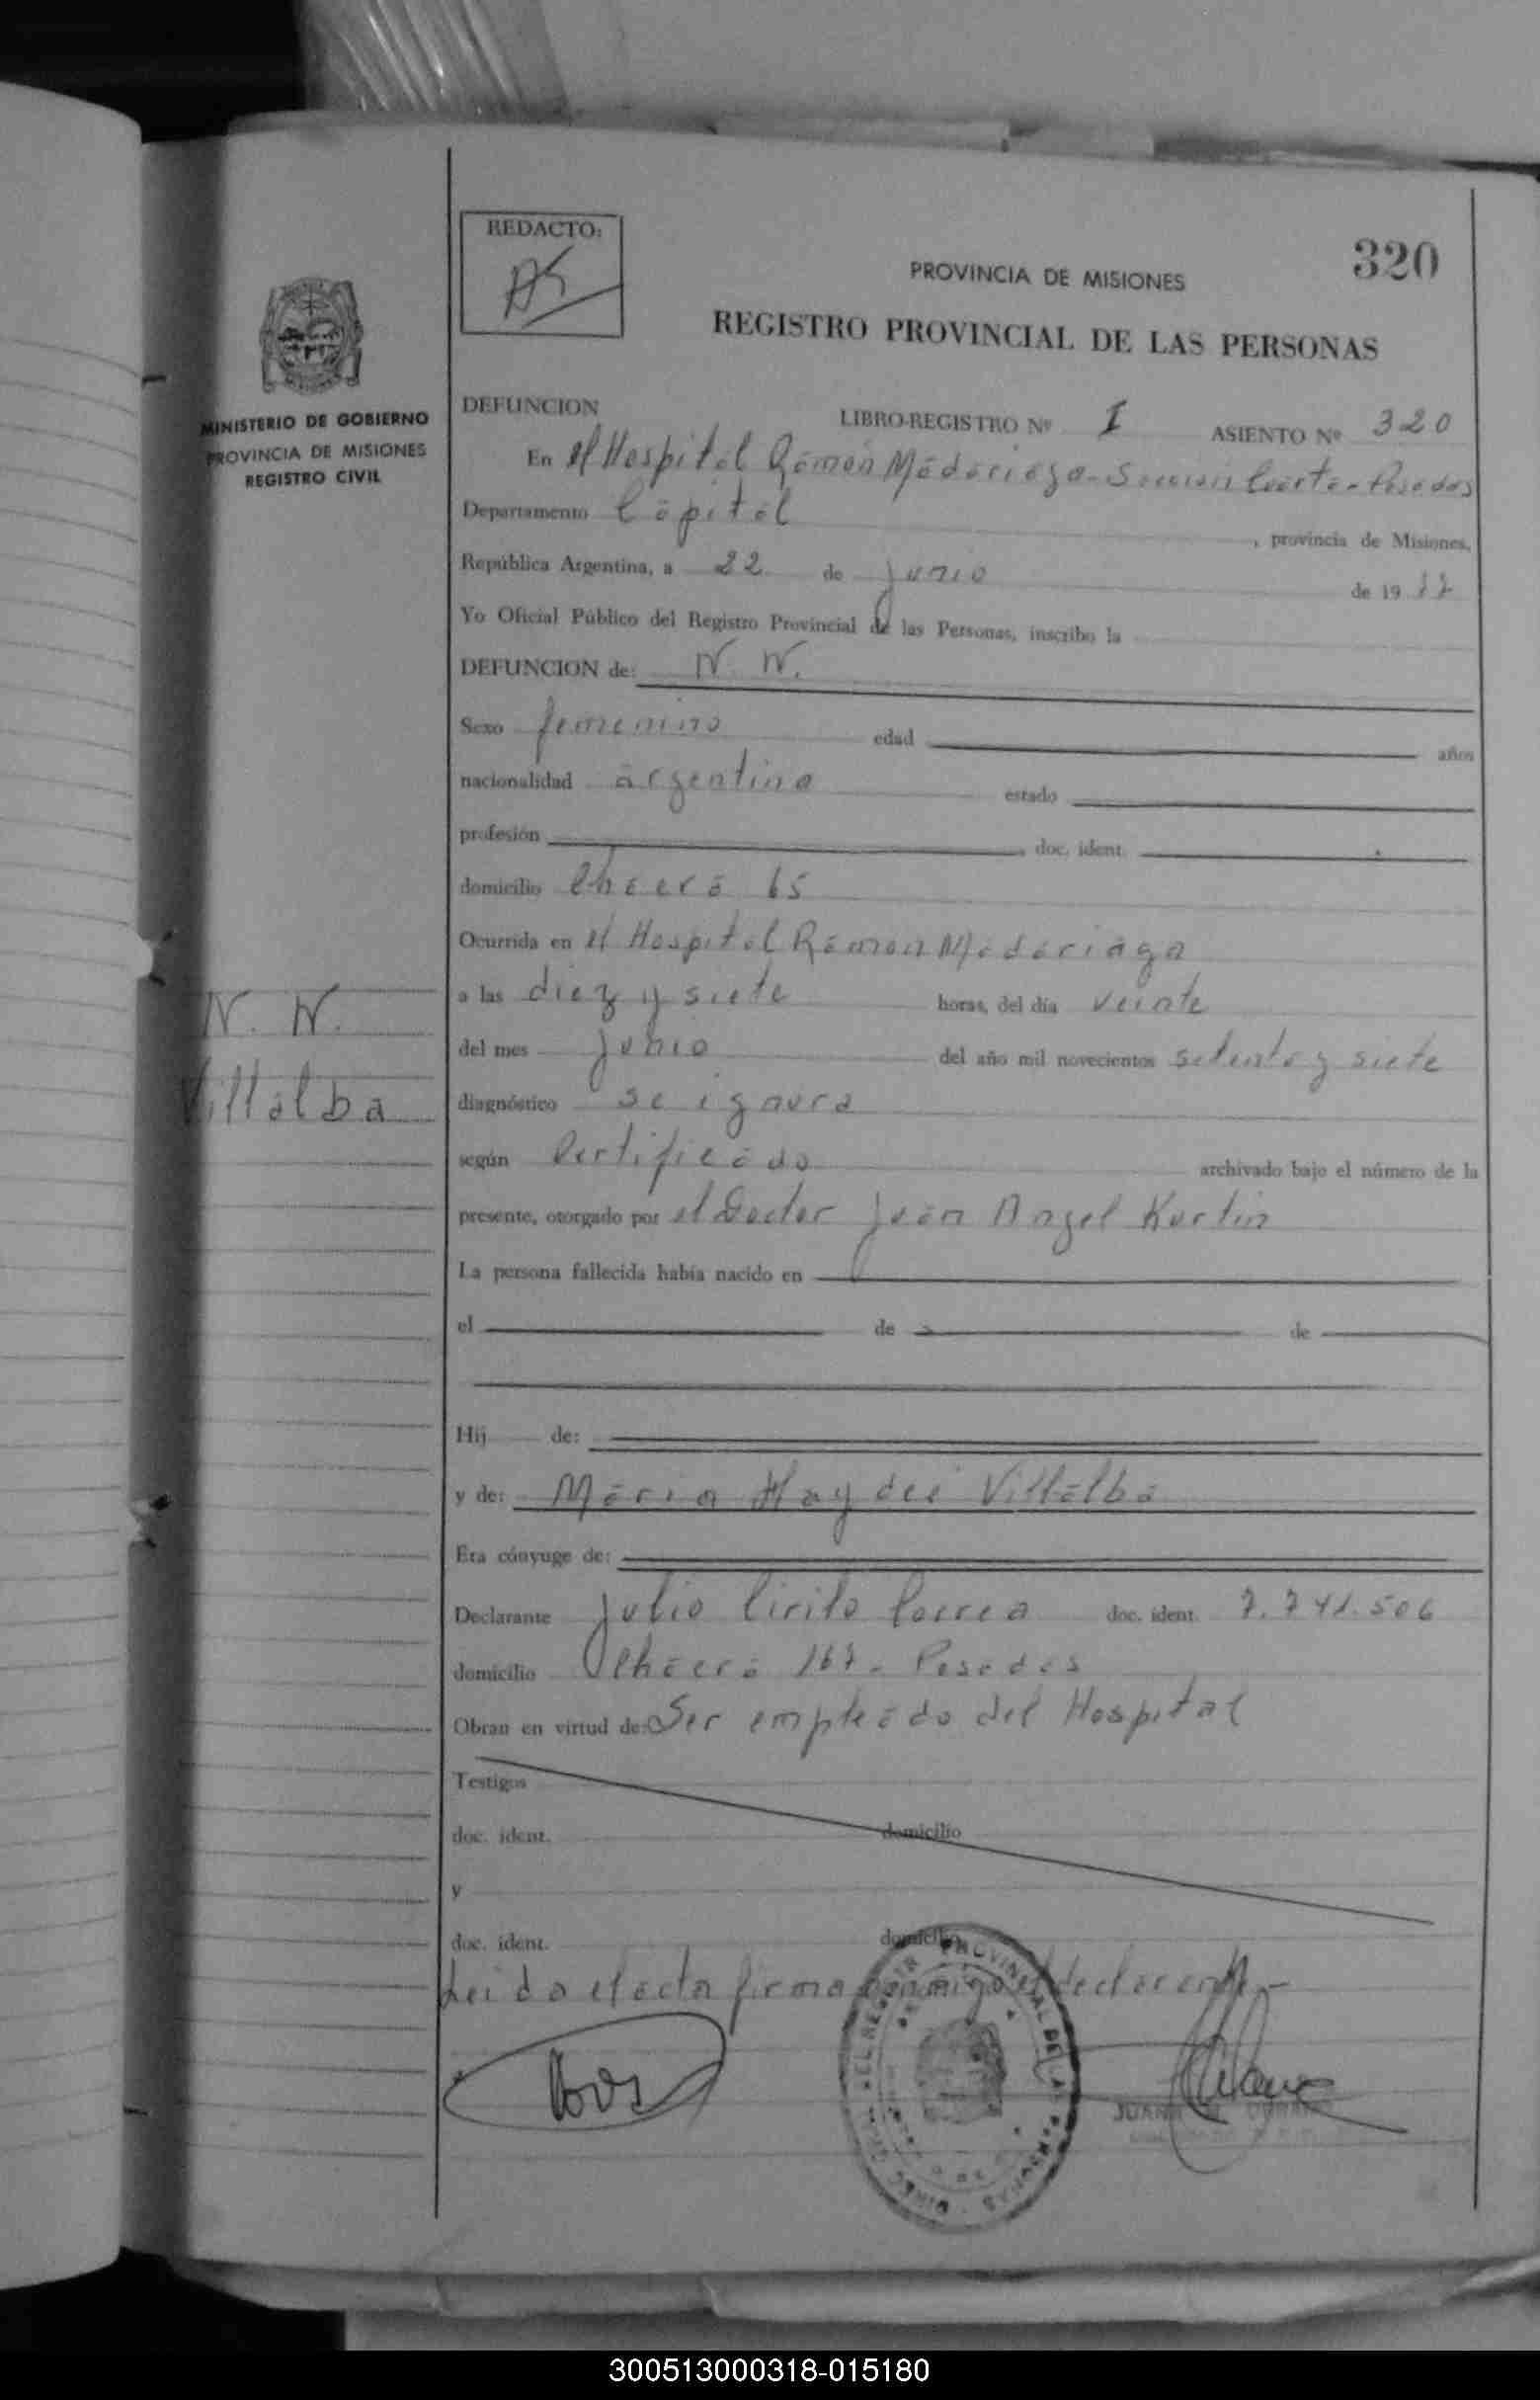 REDACTO:
320
PROVINCIA DE MISIONES
REGISTRO PROVINCIAL DE LAS PERSONAS
MINISTERIO DE GOBIERNO
PROVINCIA DE MISIONES
REGISTRO CIVIL
DEFUNCION LIBRO-REGISTRO Nº I ASIENTO Nº 320
En el Hospital Ramón Madariaga - Sección Cuarta - Posadas
Departamento Capital , provincia de Misiones,
República Argentina, a 22 de junio de 19 77
Yo Oficial Público del Registro Provincial de las Personas, inscribo la
DEFUNCION de: N. N.
Sexo femenino edad años
nacionalidad argentina estado
profesión doc. ident.
domicilio Chacra 65
Ocurrida en el Hospital Ramón Madariaga
a las diez y siete horas, del día veinte
N. N.
del mes junio del año mil novecientos setenta y siete
Villalba
diagnóstico se ignora
según Certificado archivado bajo el número de la
presente, otorgado por el Doctor Juan Angel Kurtin
La persona fallecida había nacido en
el de de
Hij de:
y de: María Haydee Villalba
Era cónyuge de:
Declarante Julio Cirilo Correa doc. ident. 7.741.506
domicilio Chacra 167 - Posadas
Obran en virtud de: Ser empleado del Hospital
Testigos
doc. ident. domicilio
y
doc. ident. domicilio
Leida el acta firma conmigo el declarante.-
PROVINCIAL DE LAS PERSONAS
JUANA
300513000318-015180